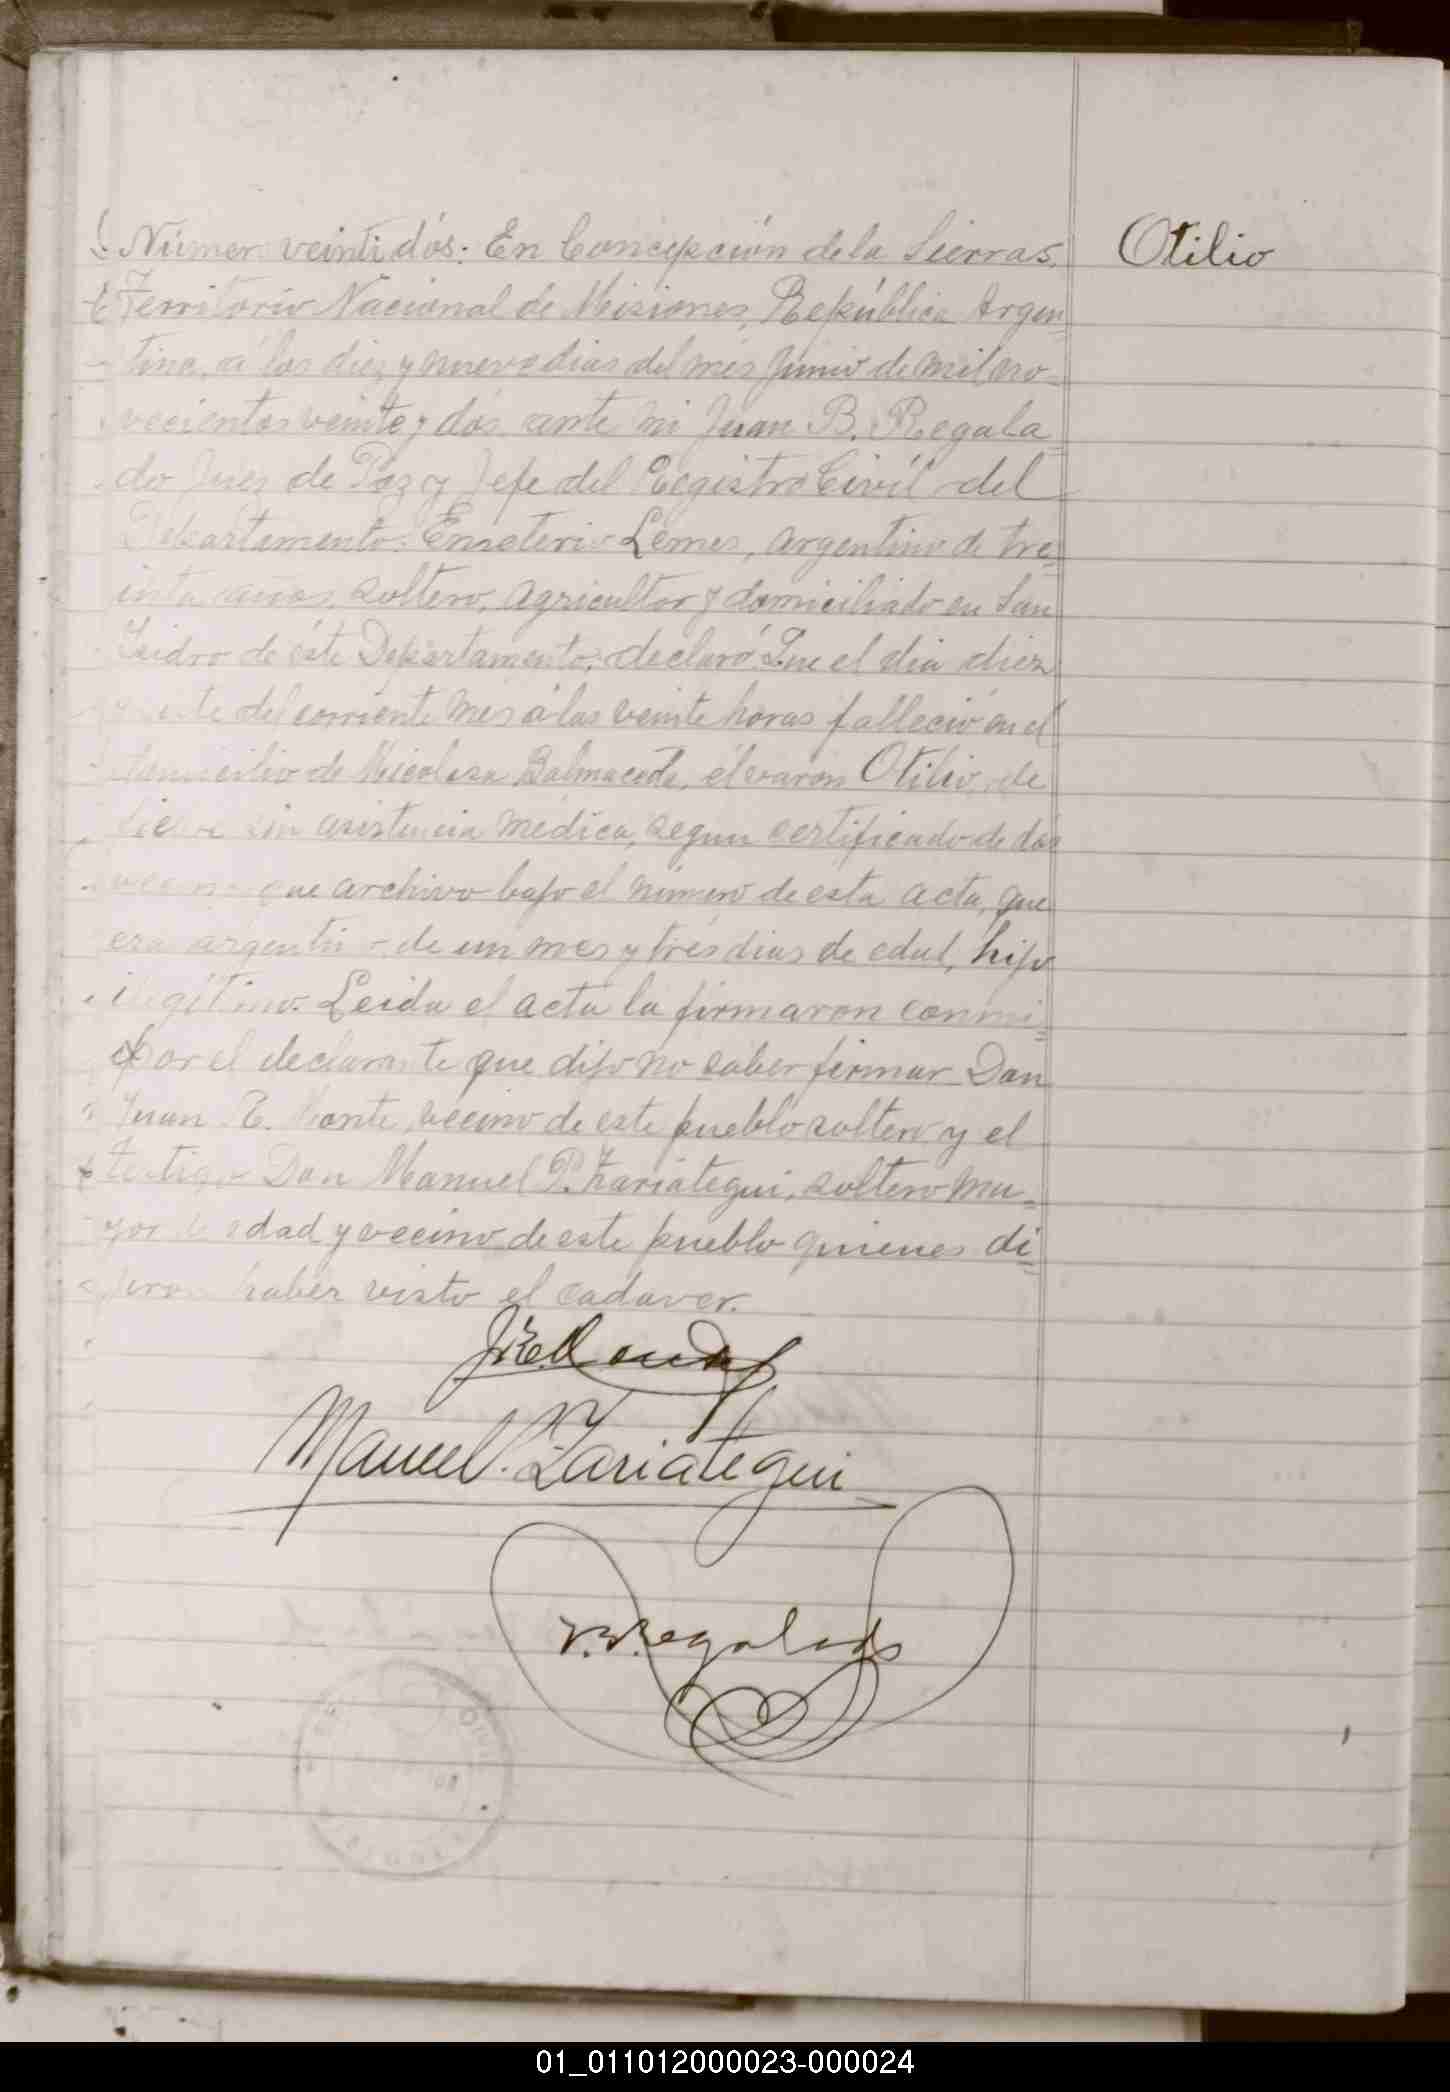 Otilio
Número veintidós: En Concepción de la Sierras,
Territorio Nacional de Misiones, República Argen-
tina, á los diez y nueve dias del mes Junio de mil no-
vecientos veinte y dós, ante mi Juan B. Regala-
do Juez de Paz y Jefe del Registro Civil del
Departamento: Emeterio Lemes, argentino de tre-
inta años, soltero, agricultor y domiciliado en San
Isidro de éste Departamento, declaró: Que el dia diez
y siete del corriente mes á las veinte horas falleció en el
domicilio de Nicolasa Balmaceda, el varon Otilio, de
fiebre sin asistencia médica, segun certificado de dós
vecinos que archivo bajo el número de esta acta, que
era argentino de un mes y tres dias de edad, hijo
ilegítimo. Leida el acta la firmaron conmi-
go por el declarante que dijo no saber firmar Don
Juan R. vecino de este pueblo soltero y el
testigo Don Manuel P. Zariategui, soltero ma-
yor de edad y vecino de este pueblo quienes di-
jeron haber visto el cadaver.
Manuel P. Zariategui
J. B. Regalado
01_011012000023-000024